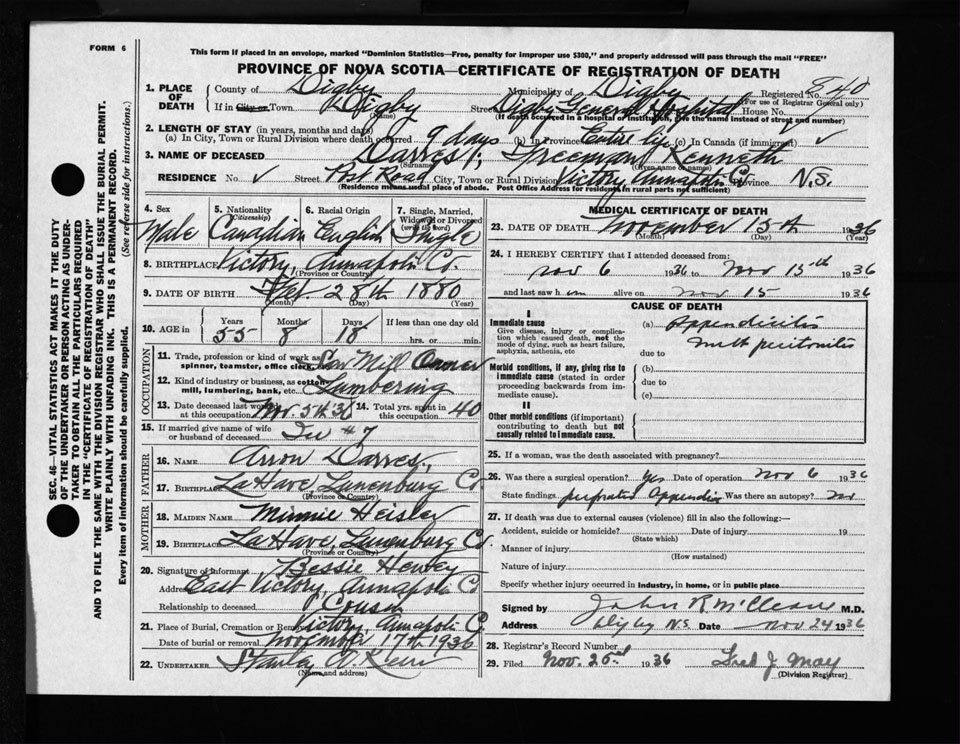 FORM 6
This form if placed in an envelope, marked "Dominion Statistics—Free, penalty for improper use $300," and properly addressed will pass through the mail "FREE"
PROVINCE OF NOVA SCOTIA—CERTIFICATE OF REGISTRATION OF DEATH
SEC. 46—VITAL STATISTICS ACT MAKES IT THE DUTY
OF THE UNDERTAKER OR PERSON ACTING AS UNDER-
TAKER TO OBTAIN ALL THE PARTICULARS REQUIRED
IN THE "CERTIFICATE OF REGISTRATION OF DEATH"
AND TO FILE THE SAME WITH THE DIVISION REGISTRAR WHO SHALL ISSUE THE BURIAL PERMIT.
WRITE PLAINLY WITH UNFADING INK. THIS IS A PERMANENT RECORD.
Every item of information should be carefully supplied. (See reverse side for instructions.)
1. PLACE OF DEATH
County of Digby Municipality of Digby Registered No. 840
(For use of Registrar General only)
If in City or Town Digby Street Digby General Hospital House No.
(Name) (If death occurred in a hospital or institution, give the name instead of street and number)
2. LENGTH OF STAY (in years, months and days)
(a) In City, Town or Rural Division where death occurred 9 days (b) In Province Entire life (c) In Canada (if immigrant) ✓
3. NAME OF DECEASED Darres, Freeman Kenneth
(Surname) (Given name or names)
RESIDENCE No. ✓ Street Post Road City, Town or Rural Division Victory Annapolis Co. Province N.S.
(Residence means usual place of abode. Post Office Address for residents in rural parts not sufficient)
4. Sex Male
5. Nationality (Citizenship) Canadian
6. Racial Origin English
7. Single, Married, Widowed or Divorced (write the word) Single
8. BIRTHPLACE Victory, Annapolis Co.
(Province or Country)
9. DATE OF BIRTH 28th 1880
(Month) (Day) (Year)
10. AGE in Years Months Days If less than one day old
55 8 18 hrs. or min.
OCCUPATION
11. Trade, profession or kind of work as spinner, teamster, office clerk, Saw Mill Owner
12. Kind of industry or business, as cotton-mill, lumbering, bank, etc. Lumbering
13. Date deceased last worked at this occupation Nov. 5th 36
14. Total yrs. spent in this occupation 40
15. If married give name of wife or husband of deceased
FATHER
16. NAME Arron Darres,
17. BIRTHPLACE LaHave, Lunenburg Co
(Province or Country)
MOTHER
18. MAIDEN NAME Minnie Heisler
19. BIRTHPLACE LaHave, Lunenburg Co.
(Province or Country)
20. Signature of Informant Bessie
Address East Victory, Annapolis Co
Relationship to deceased Cousin
21. Place of Burial, Cremation or Removal Victory, Annapolis C.
Date of burial or removal November 17th 1936
22. UNDERTAKER Stanley A.
(Name and address)
MEDICAL CERTIFICATE OF DEATH
23. DATE OF DEATH November 15th 1936
(Month) (Day) (Year)
24. I HEREBY CERTIFY that I attended deceased from:
Nov 6 1936 to Nov 15th 1936
and last saw him alive on Nov 15 1936
CAUSE OF DEATH
I
Immediate cause
Give disease, injury or complication which caused death, not the mode of dying, such as heart failure, asphyxia, asthenia, etc
(a) Appendicitis
with peritonitis
due to
Morbid conditions, if any, giving rise to immediate cause (stated in order proceeding backwards from immediate cause).
(b)
due to
(c)
II
Other morbid conditions (if important) contributing to death but not causally related to immediate cause.
25. If a woman, was the death associated with pregnancy?
26. Was there a surgical operation? Yes Date of operation Nov 6 1936
State findings perforated Appendix Was there an autopsy? No
27. If death was due to external causes (violence) fill in also the following:—
Accident, suicide or homicide? Date of injury 19
(State which)
Manner of injury
(How sustained)
Nature of injury
Specify whether injury occurred in industry, in home, or in public place
Signed by John R McCleave M.D.
Address Digby N.S. Date Nov 24 1936
28. Registrar's Record Number
29. Filed Nov. 25 1936 Fred J. May
(Division Registrar)